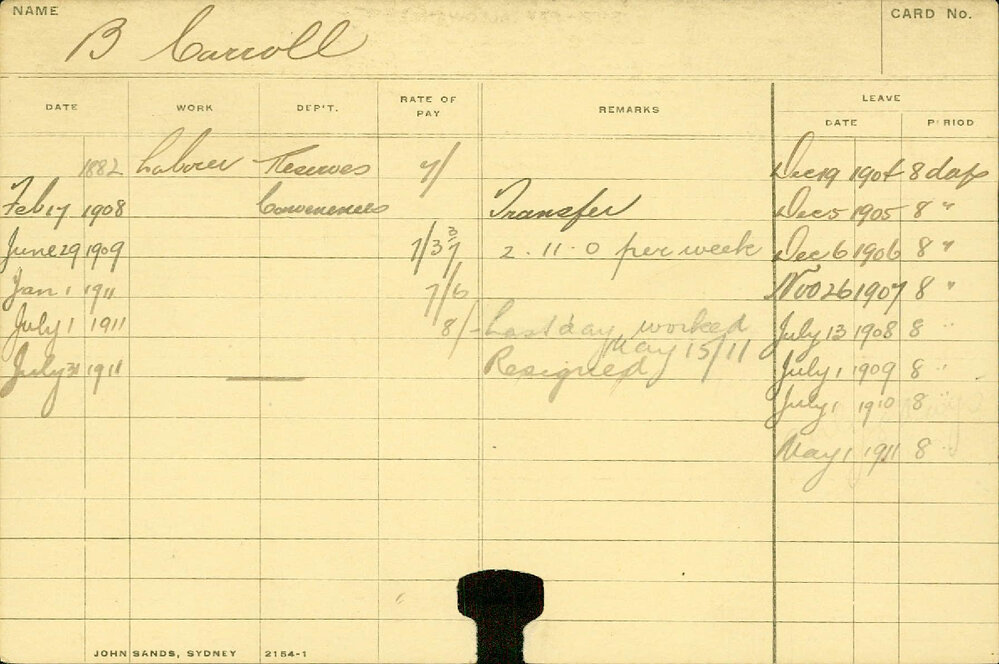 NAME
CARD No.
B Carroll
DATE WORK DEP'T. RATE OF PAY REMARKS LEAVE
DATE PERIOD
1882 Laborer Reserves 7/ Dec 19 1904 8 days
Feb 17 1908 Transfer Dec 5 1905 8 "
June 29 1909 7/3 3/7 2. 11. 0 per week Dec 6 1906 8 "
Jan 1 1911 7/6 Nov 26 1907 8 "
July 1 1911 8/- Last day worked July 13 1908 8 "
May 15/11
July 31 1911 Resigned July 1 1909 8 "
July 1 1910 8 "
May 1 1911 8 "
JOHN SANDS, SYDNEY 2154-1